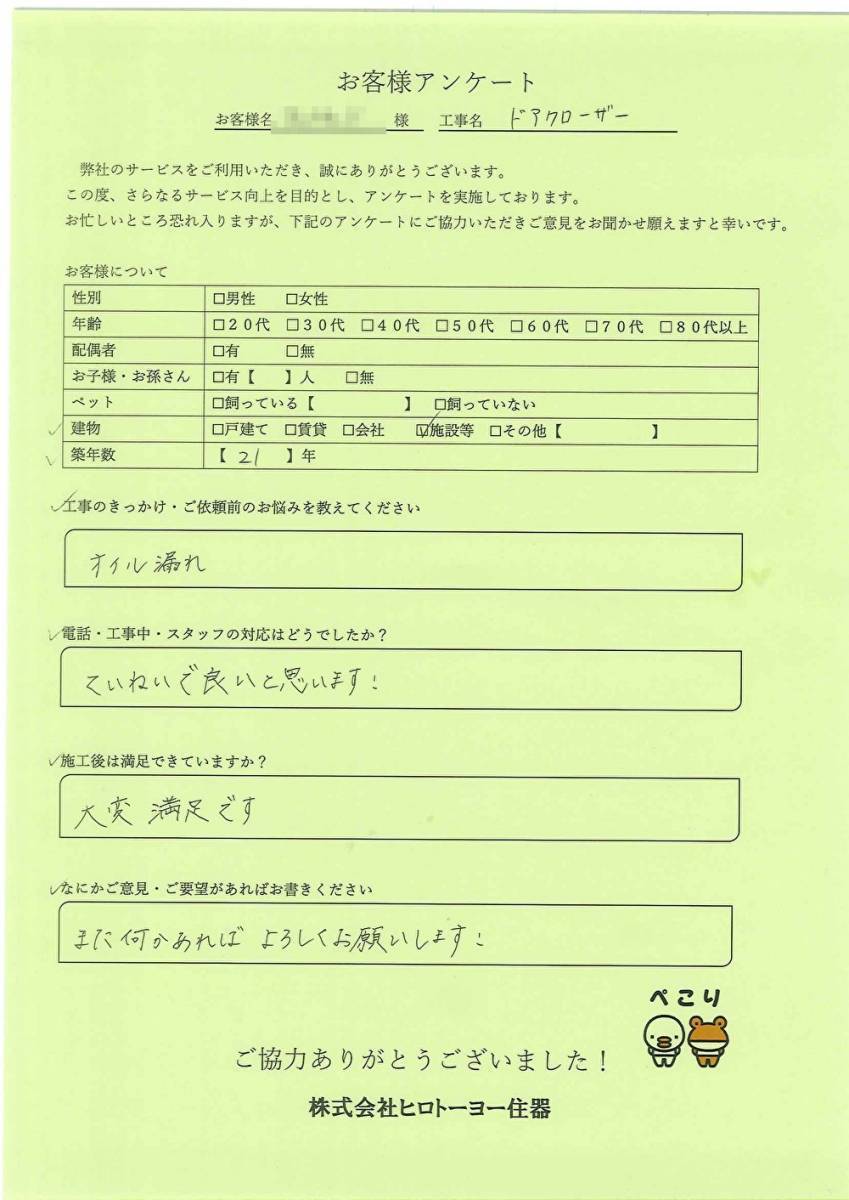 お客様アンケート
お客様名 様 工事名 ドアクローザー
弊社のサービスをご利用いただき、誠にありがとうございます。
この度、さらなるサービス向上を目的とし、アンケートを実施しております。
お忙しいところ恐れ入りますが、下記のアンケートにご協力いただきご意見をお聞かせ願えますと幸いです。
お客様について
性別 □男性 □女性
年齢 □20代 □30代 □40代 □50代 □60代 □70代 □80代以上
配偶者 □有 □無
お子様・お孫さん □有【 】人 □無
ペット □飼っている【 】 □飼っていない
✓建物 □戸建て □賃貸 □会社 ☑施設等 □その他【 】
✓築年数 【 21 】年
✓工事のきっかけ・ご依頼前のお悩みを教えてください
オイル漏れ
✓電話・工事中・スタッフの対応はどうでしたか？
ていねいで良いと思います!
✓施工後は満足できていますか？
大変満足です
✓なにかご意見・ご要望があればお書きください
また何かあれば よろしくお願いします!
ぺこり
ご協力ありがとうございました！
株式会社ヒロトーヨー住器